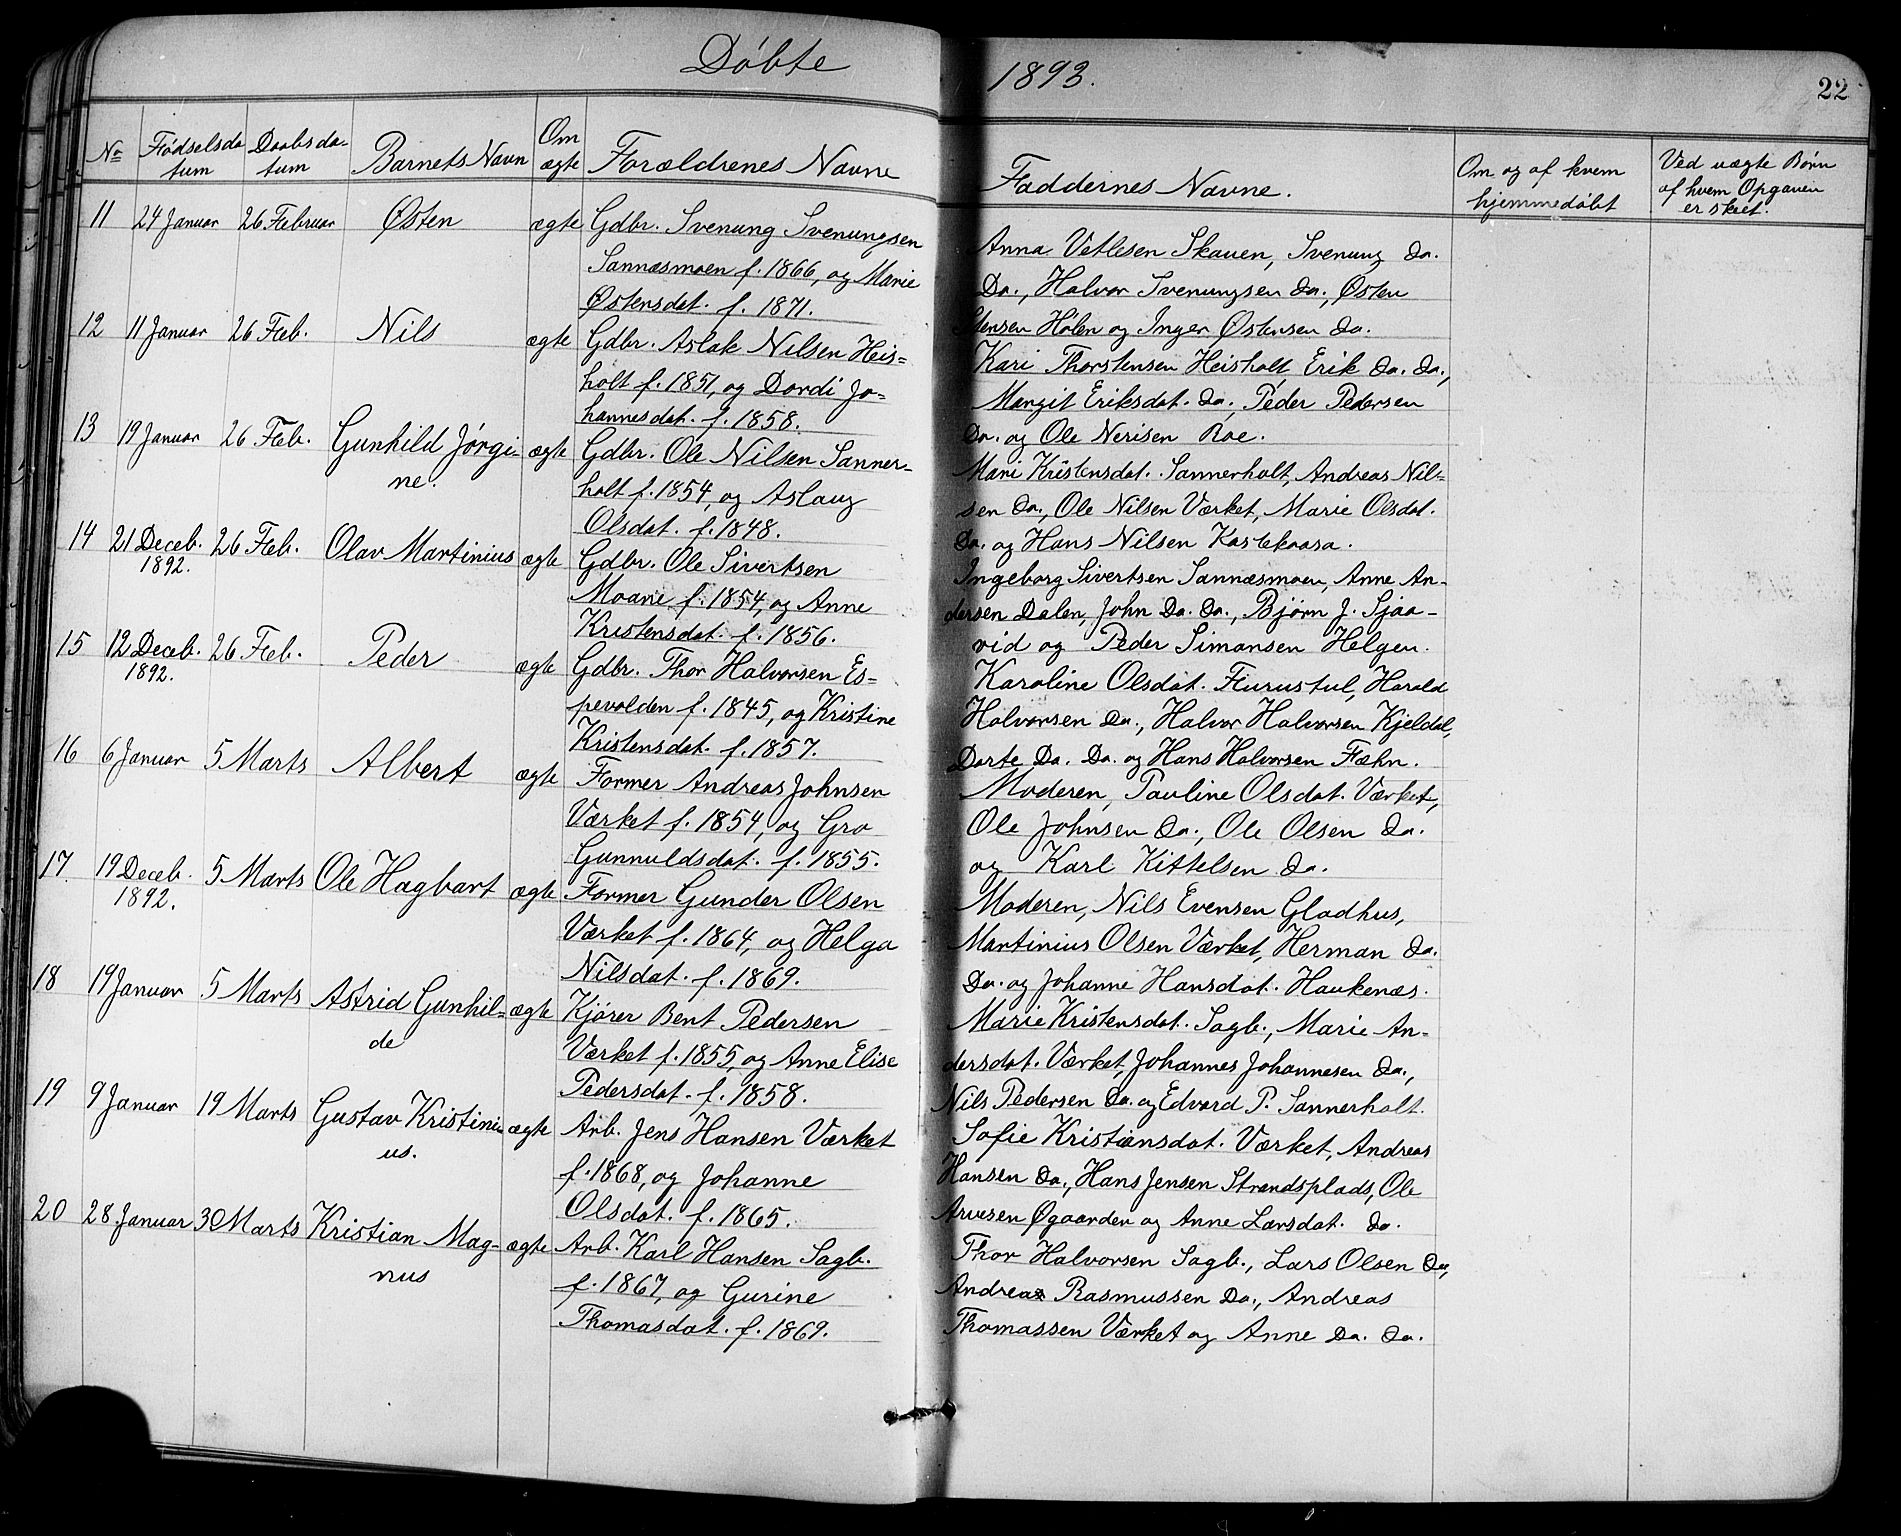 Döbte
1893.
22
No
Fødselsda-
tum
Daabsda-
tum
Barnets Navn
Om
ægte
Forældrenes Navne
Faddernes Navne.
Om og af hvem
hjemmedøbt
Ved uægte Børn
af hvem Opgaven
er skeet.
11 24 Januar 26 Februar Østen ægte Gdbr. Svenung Svenungsen
Sannæsmoen f. 1866, og Marie
Østensdat. f. 1871.
Anna Vetlesen Skauen, Svenung do.
Do., Halvor Svenungsen do., Østen
Stensen Holen og Inger Østensen do.
12 11 Januar 26 Feb. Nils ægte Gdbr. Aslak Nilsen Heis-
holt f. 1851, og Dordi Jo-
hannesdat. f. 1858.
Kari Thorstensen Heisholt Erik do. do.,
Margit Eriksdat. do., Peder Pedersen
Do. og Ole Nerisen Roe.
13 19 Januar 26 Feb. Gunhild Jørgi-
ne. ægte Gdbr. Ole Nilsen Sanner-
holt f. 1854, og Aslaug
Olsdat. f. 1848.
Mari Kristensdat. Sannerholt, Andreas Nil-
sen do., Ole Nilsen Værket, Marie Olsdat.
Do. og Hans Nilsen Kastekaasa.
14 21 Deceb.
1892. 26 Feb. Olav Martinius ægte Gdbr. Ole Sivertsen
Moane f. 1854, og Anne
Kristensdat. f. 1856.
Ingeborg Sivertsen Sannæsmoen, Anne An-
dersen Dalen, John Do. Do., Bjørn J. Sjaa-
vid og Peder Simonsen Helgen.
15 12 Deceb.
1892. 26 Feb. Peder ægte Gdbr. Thor Halvorsen Es-
pevolden f. 1845, og Kristine
Kristensdat. f. 1857.
Karoline Olsdat. Furustul, Harald
Halvorsen Do., Halvor Halvorsen Kjeldal,
Dorte Do. Do. og Hans Halvorsen Fæhn.
16 6 Januar 5 Marts Albert ægte Former Andreas Johnsen
Værket f. 1854, og Gro
Gunnuldsdat. f. 1855.
Moderen, Pauline Olsdat. Værket,
Ole Johnsen Do., Ole Olsen do.
og Karl Kittelsen do.
17. 19 Deceb.
1892. 5 Marts Ole Hagbart ægte Former Gunder Olsen
Værket f. 1864, og Helga
Nilsdat. f. 1869.
Moderen, Nils Evensen Gladhus,
Martinius Olsen Værket, Herman do.
Do. og Johanne Hansdat. Haukenæs.
18 19 Januar 5 Marts Astrid Gunhil-
de ægte Kjører Bent Pedersen
Værket f. 1855, og Anne Elise
Pedersdat. f. 1858.
Marie Kristensdat. Sagb., Marie An-
dersdat. Værket, Johannes Johannesen do.,
Nils Pedersen Do. og Edvard P. Sannerholt.
19 9 Januar 19 Marts Gustav Kristini-
us. ægte Arb. Jens Hansen Værket
f. 1868, og Johanne
Olsdat. f. 1865.
Sofie Kristiansdat. Værket, Andreas
Hansen Do., Hans Jensen Strandsplads, Ole
Arvesen Øgaarden og Anne Larsdat. do.
20 28 Januar 30 Marts Kristian Mag-
nus ægte Arb. Karl Hansen Sagb.
f. 1867, og Gurine
Thomasdat. f. 1869.
Thor Halvorsen Sagb., Lars Olsen do.,
Andreas Rasmussen Do., Andreas
Thomassen Værket og Anne do. do.